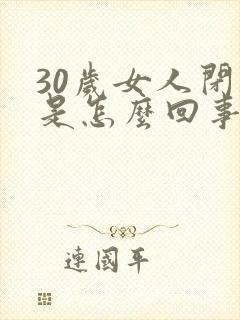 30歲女人閉
是怎麼回事
連國平